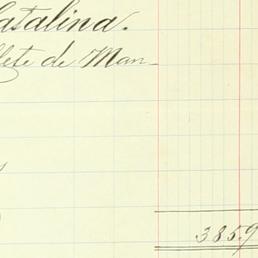 Catalina.
flete de Man-
385.9